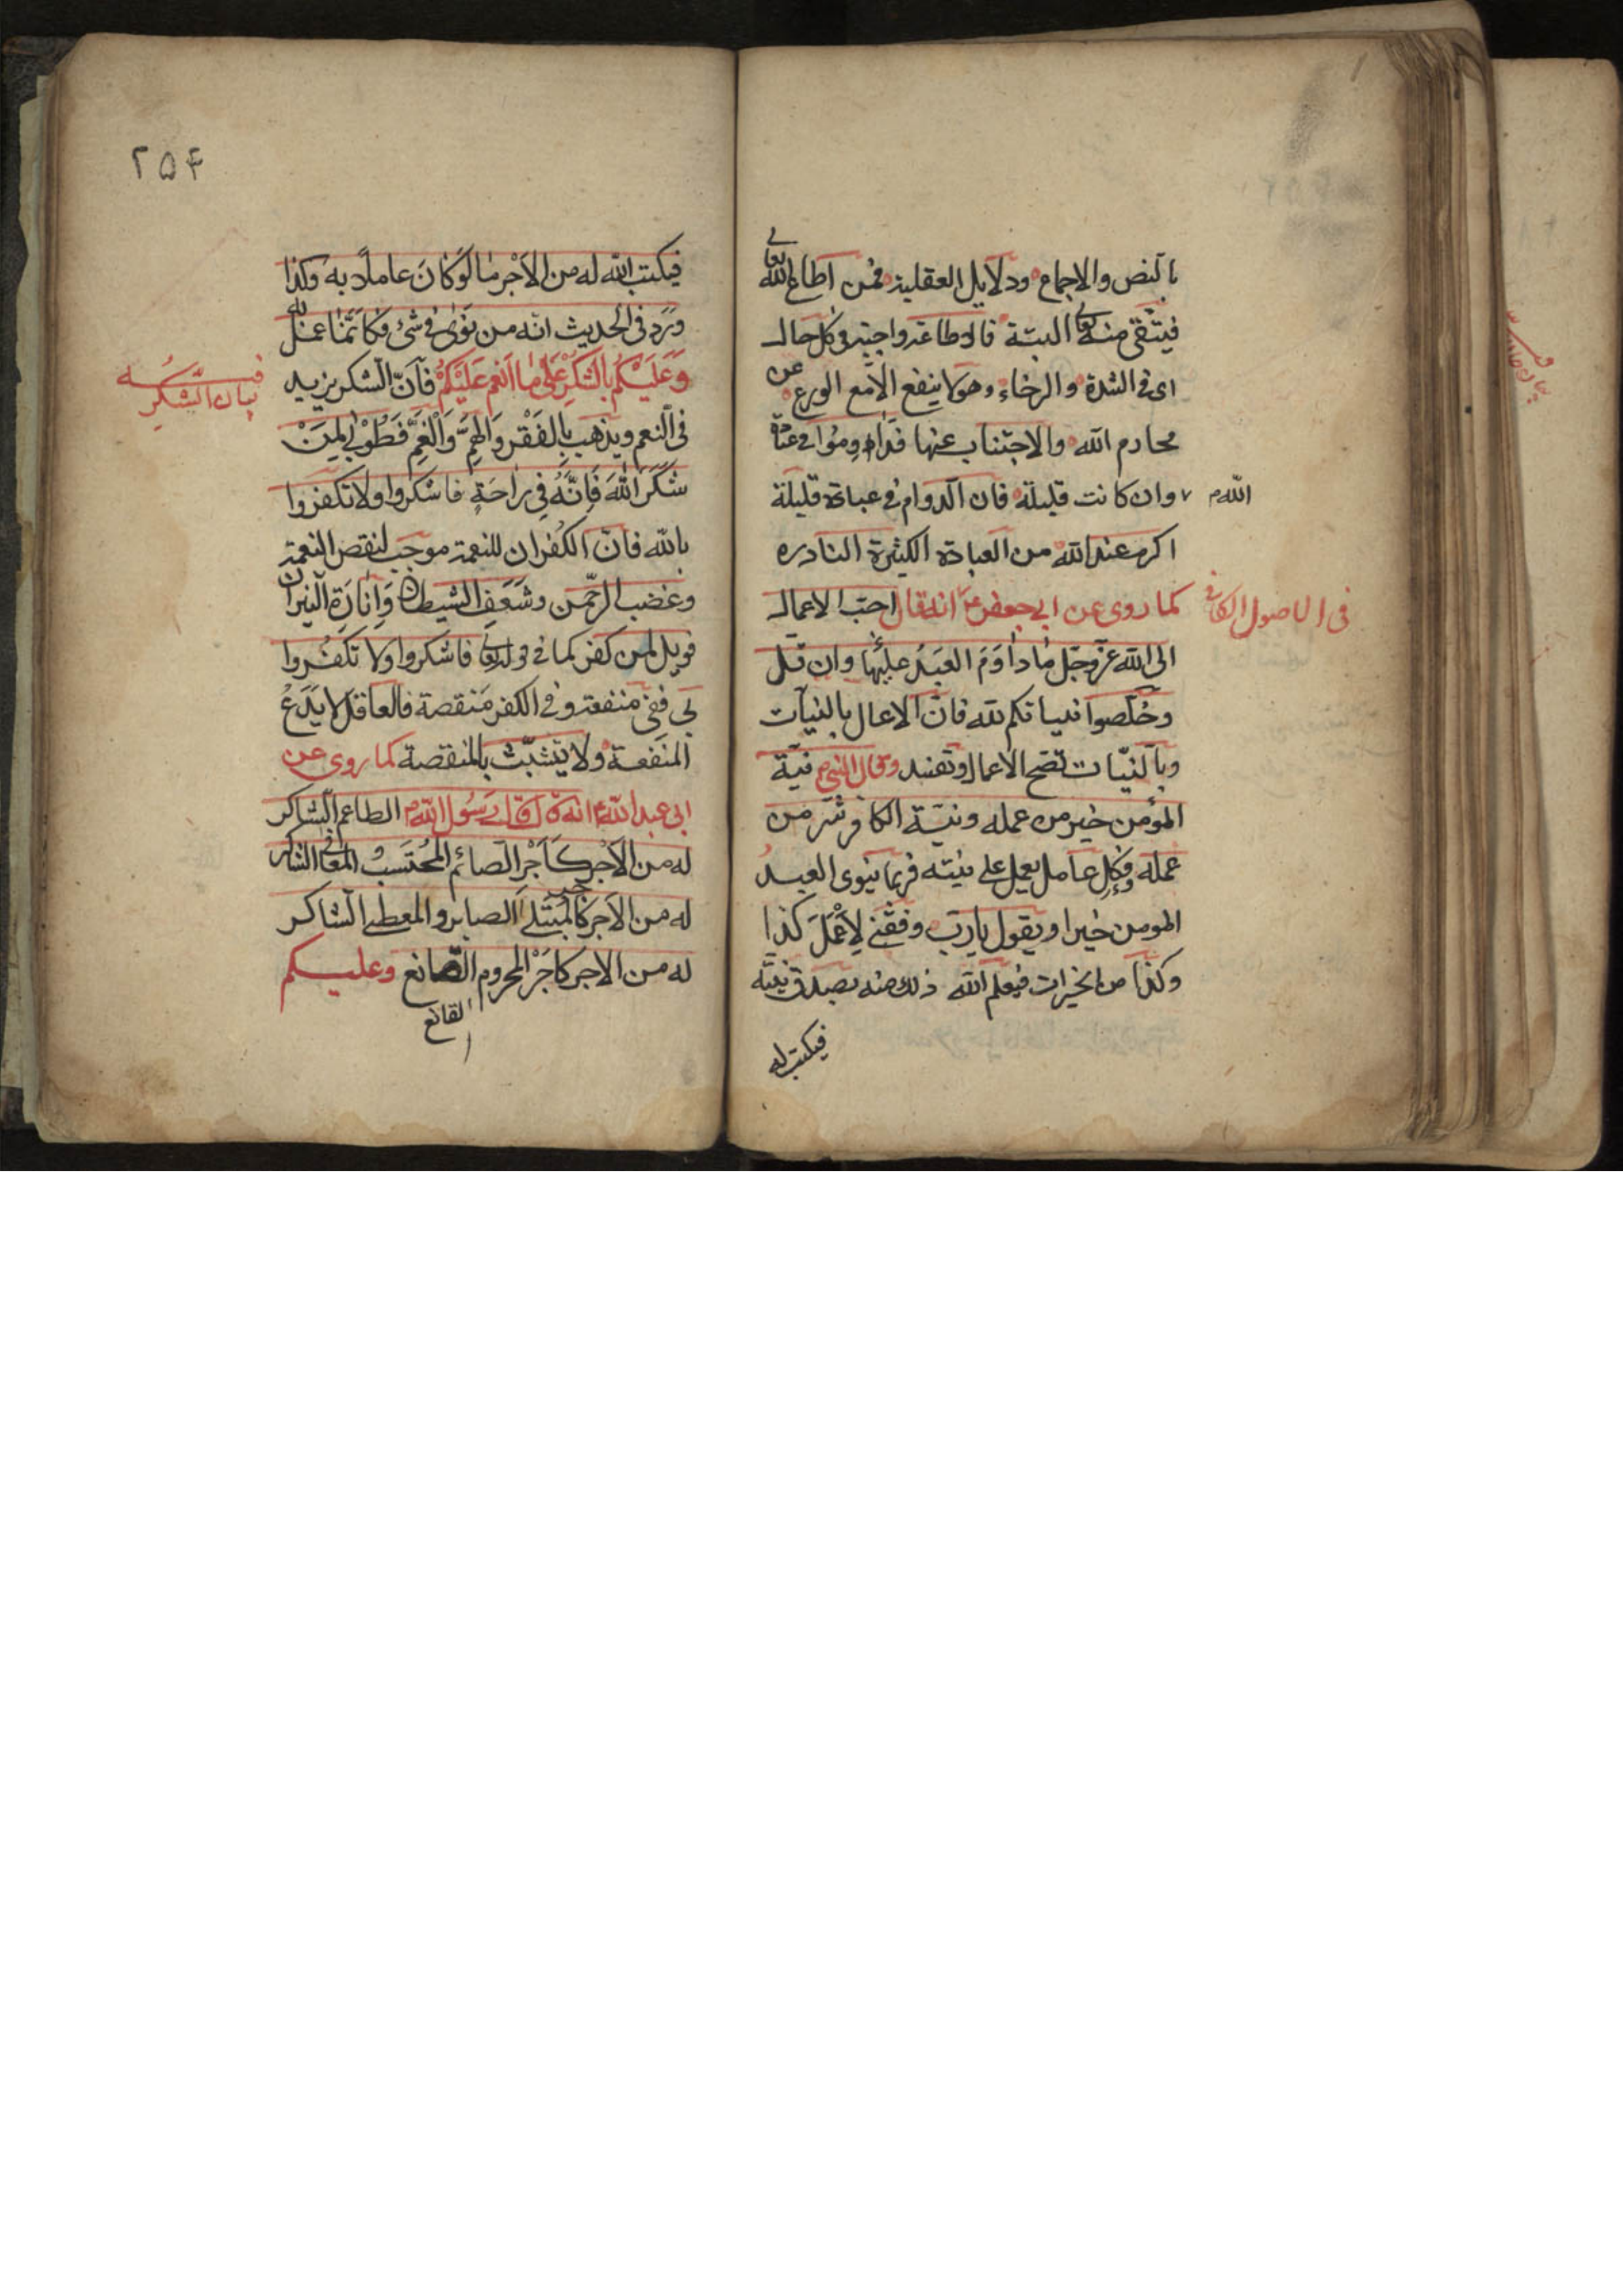 بالنص والاجماع ودلايل العقلية فمن اطاع الله تعالى
فيتقى منه تعالى البتة فاطاعته واجبة في كل حال
اى فى الشدة والرخاء وهو لا ينفع الا مع الورع عن
محارم الله والاجتناب عنها فداوموا في عبادة
الله وان كانت قليلة فان الدوام في عبادة قليلة
اكرم عند الله من العبادة الكثيرة النادره
فى الاصول الكافي
كما روى عن ابي جعفر ع انه قال احب الاعمال
الى الله عز وجل ما داوم العبد عليها وان قل
وخلصوا نياتكم لله فان الاعمال بالنيات
وبالنيات تصح الاعمال وتفسد وقال النبى نية
المؤمن خير من عمله ونية الكافر شر من
عمله وكل عامل يعمل على نيته فربما ينوى العبد
المومن خيرا ويقول يا رب وفقني لأعمل كذا
وكذا من الخيرات فيعلم الله ذلك منه بصدق نيته
فيكتب له
۲۵۴
فيكتب الله له من الاجر ما لو كان عاملا به وكذا
ورد فى الحديث انه من نوى في شئ فكانما عمل له
فى بيان الشكر
وعليكم بالشكر على ما انعم عليكم فان الشكر يزيد
فى النعم ويذهب بالفقر والهم والغم فطوبى لمن
شكر الله فانه في راحة فاشكروا ولا تكفروا
بالله فان الكفران للنعمة موجب لنقص النعمة
وغضب الرحمن وشعف الشيطان وانارة النيران
فويل لمن كفر كما في قوله تعالى فاشكروا ولا تكفروا
لى ففى منفعة وفى الكفر منقصة فالعاقل لا يدع
المنفعة ولا يتشبث بالمنقصة كما روى عن
ابى عبد الله ع انه قال قال رسول الله الطاعم الشاكر
له من الاجر كاجر الصائم المحتسب والمعافى الشاكر
له من الاجر كاجر المبتلى الصابر والمعطى الشاكر
له من الاجر كاجر المحروم القانع وعليكم
القانع